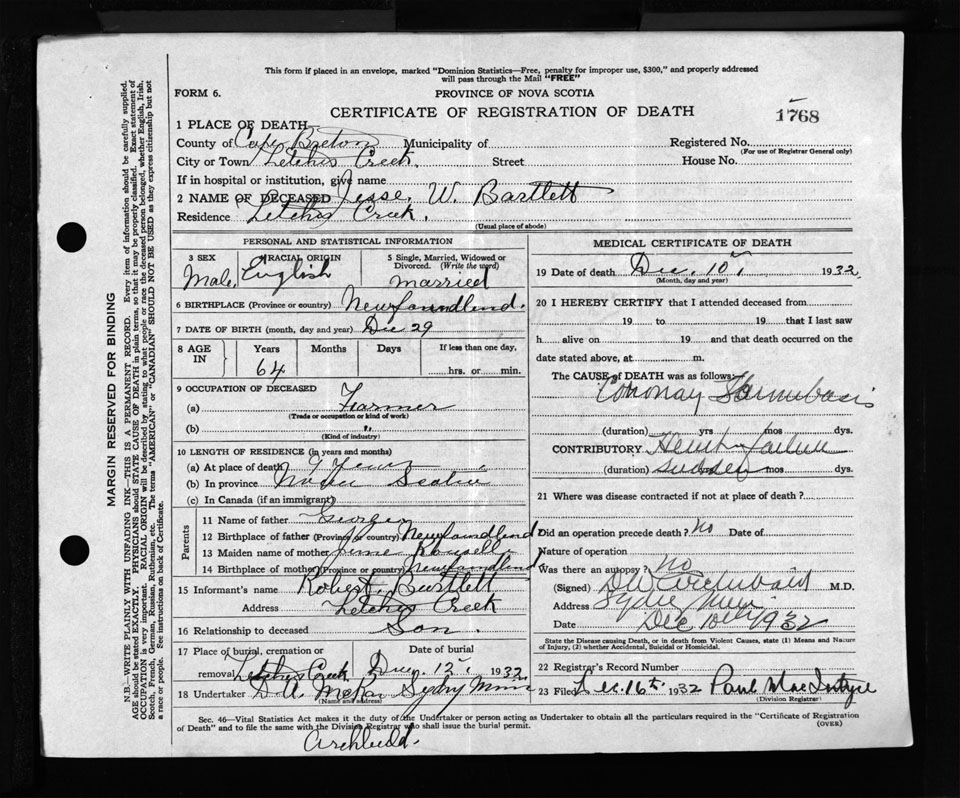 This form if placed in an envelope, marked "Dominion Statistics—Free, penalty for improper use, $300," and properly addressed
will pass through the Mail "FREE"
FORM 6.
PROVINCE OF NOVA SCOTIA
CERTIFICATE OF REGISTRATION OF DEATH
1768
1 PLACE OF DEATH
County of Cape Breton Municipality of
Registered No.
(For use of Registrar General only)
City or Town Letches Creek. Street House No.
If in hospital or institution, give name
2 NAME OF DECEASED Jesse. W. Bartlett
Residence Letches Creek.
(Usual place of abode)
PERSONAL AND STATISTICAL INFORMATION
3 SEX Male,
4 RACIAL ORIGIN English
5 Single, Married, Widowed or
Divorced. (Write the word)
married
6 BIRTHPLACE (Province or country) Newfoundlend.
7 DATE OF BIRTH (month, day and year) Dec 29
8 AGE IN Years Months Days If less than one day,
64 hrs. or min.
9 OCCUPATION OF DECEASED
(a) Farmer
(Trade or occupation or kind of work)
(b) "
(Kind of industry)
10 LENGTH OF RESIDENCE (in years and months)
(a) At place of death Years
(b) In province Nova Scotia
(c) In Canada (if an immigrant)
Parents
11 Name of father George
12 Birthplace of father (Province or country) Newfoundlend
13 Maiden name of mother
14 Birthplace of mother (Province or country) Newfoundlend
15 Informant's name Robert Bartlett
Address Letches Creek
16 Relationship to deceased Son.
17 Place of burial, cremation or
removal Letches Creek
Date of burial
12 1932
18 Undertaker D.A. Sydney Mines
(Name and address)
MEDICAL CERTIFICATE OF DEATH
19 Date of death Dec. 10 1932
(Month, day and year)
20 I HEREBY CERTIFY that I attended deceased from
19 to 19 that I last saw
h alive on 19 and that death occurred on the
date stated above, at m.
The CAUSE of DEATH was as follows:
(duration) yrs mos dys.
CONTRIBUTORY Heart failure
(duration) sudden mos dys.
21 Where was disease contracted if not at place of death?
Did an operation precede death? No Date of
Nature of operation
Was there an autopsy? No
(Signed) D W Archibald M.D.
Address Sydney Mines
Date Dec 10th 1932
State the Disease causing Death, or in death from Violent Causes, state (1) Means and Nature
of Injury, (2) whether Accidental, Suicidal or Homicidal.
22 Registrar's Record Number
23 Filed Dec. 16th 1932 Paul MacIntyre
(Division Registrar)
Sec. 46—Vital Statistics Act makes it the duty of the Undertaker or person acting as Undertaker to obtain all the particulars required in the "Certificate of Registration
of Death" and to file the same with the Division Registrar who shall issue the burial permit.
(OVER)
MARGIN RESERVED FOR BINDING
N.B.—WRITE PLAINLY WITH UNFADING INK—THIS IS A PERMANENT RECORD. Every item of information should be carefully supplied.
AGE should be stated EXACTLY. PHYSICIANS should STATE CAUSE OF DEATH in plain terms, so that it may be properly classified. Exact statement of
OCCUPATION is very important. RACIAL ORIGIN will be described by stating to what people or race the deceased person belonged, whether English, Irish,
Scotch, French, German, Russian, Ruthenian, etc. The terms "AMERICAN" or "CANADIAN" SHOULD NOT BE USED as they express citizenship but not
a race or people. See instructions on back of Certificate.